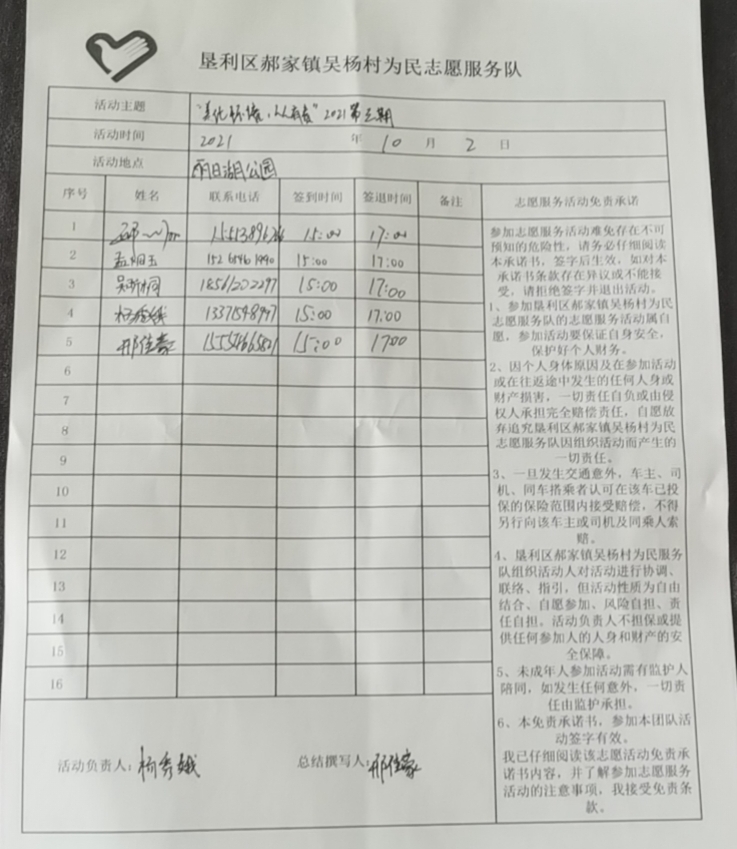 垦利区郝家镇吴杨村为民志愿服务队
活动主题 "美化环境,从我有责" 2021第三期
活动时间 2021 年 10 月 2 日
活动地点 丽日湖公园
序号 姓名 联系电话 签到时间 签退时间 备注 志愿服务活动免责承诺
1 15:00 17:00
2 孟阳玉 15:00 17:00
3 18561202297 15:00 17:00
4 15:00 17:00
5 邢佳豪 15:00 17:00
6
7
8
9
10
11
12
13
14
15
16
参加志愿服务活动难免存在不可
预知的危险性,请务必仔细阅读
本承诺书,签字后生效,如对本
承诺书条款存在异议或不能接
受,请拒绝签字并退出活动。
1、参加垦利区郝家镇吴杨村为民
志愿服务队的志愿服务活动属自
愿,参加活动要保证自身安全,
保护好个人财务。
2、因个人身体原因及在参加活动
或在往返途中发生的任何人身或
财产损害,一切责任自负或由侵
权人承担完全赔偿责任,自愿放
弃追究垦利区郝家镇吴杨村为民
志愿服务队因组织活动而产生的
一切责任。
3、一旦发生交通意外,车主、司
机、同车搭乘者认可在该车已投
保的保险范围内接受赔偿,不得
另行向该车主或司机及同乘人索
赔。
4、垦利区郝家镇吴杨村为民服务
队组织活动人对活动进行协调、
联络、指引,但活动性质为自由
结合、自愿参加、风险自担、责
任自担。活动负责人不担保或提
供任何参加人的人身和财产的安
全保障。
5、未成年人参加活动需有监护人
陪同,如发生任何意外,一切责
任由监护承担。
6、本免责承诺书,参加本团队活
动签字有效。
我已仔细阅读该志愿活动免责承
诺书内容,并了解参加志愿服务
活动的注意事项,我接受免责条
款。
活动负责人:杨秀娥 总结撰写人:邢佳豪